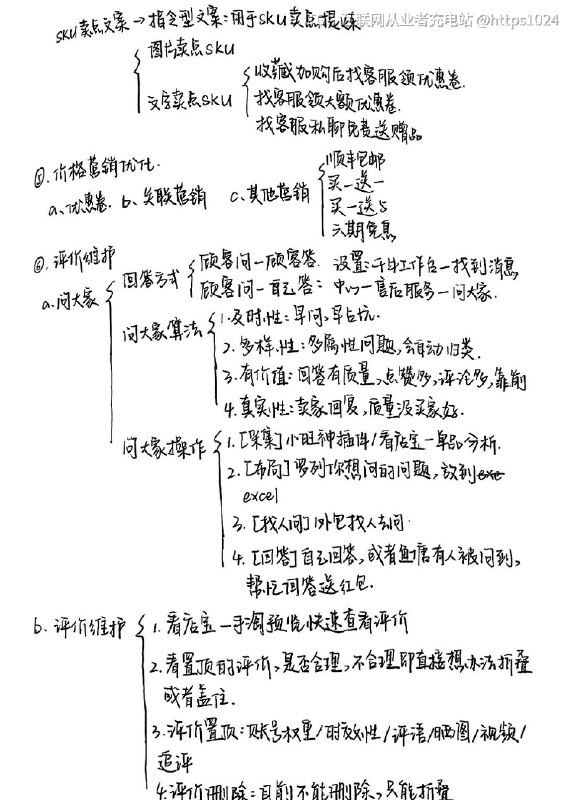 联网从业者充电站 @https1024
SKU卖点文案→指令型文案:用于SKU卖点提炼
图片卖点SKU
文字卖点SKU
收藏加购后找客服领优惠卷.
找客服领大额优惠卷.
找客服私聊免费送赠品
⑤.价格营销优化.
a.优惠卷. b.关联营销 c.其他营销
顺丰包邮
买一送一
买一送5
六期免息
⑥.评价维护
a.问大家
回答方式
顾客问一顾客答. 设置:千牛工作台一找到消息
顾客问一自己答: 中心一售后服务一问大家.
问大家算法
1.及时性:早问,早占坑.
2.多样性:多属性问题,会自动归类.
3.有价值:回答有质量,点赞多,评论多,靠前
4.真实性:卖家回复,质量没买家好.
问大家操作
1.[采集]小旺神插件/看店宝一单品分析.
2.[布局]罗列你想问的问题,放到exe
excel
3.[找人问]外包找人去问.
4.[回答]自己回答,或者鱼塘有人被问到,
帮忙回答送红包.
b.评价维护
1.看店宝一手淘预览快速查看评价
2.看置顶的评价,是否合理,不合理即直接想办法折叠
或者盖住.
3.评价置顶:账号权重/时效性/评语/晒图/视频/
追评
4.评价删除:目前不能删除,只能折叠